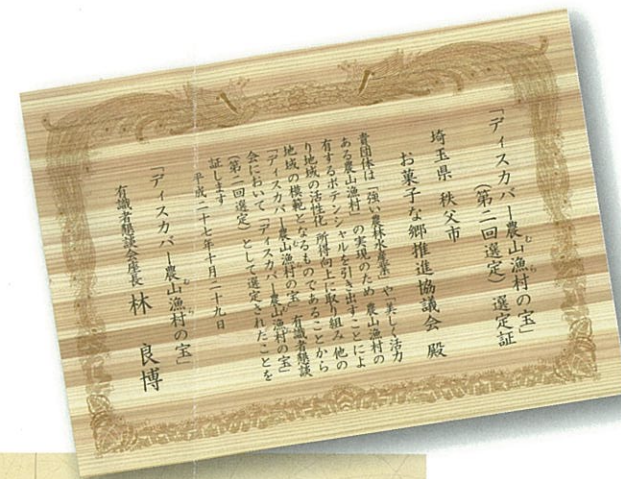 「ディスカバー農山漁村の宝」
むら
（第二回選定）　選定証
埼玉県　秩父市
お菓子な郷推進協議会　殿
貴団体は「強い農林水産業」や「美しく活力
ある農山漁村」の実現のため　農山漁村の
有するポテンシャルを引き出すことによ
り地域の活性化　所得向上に取り組み　他の
地域の模範となるものであることから
「ディスカバー農山漁村の宝」有識者懇談
むら
会において「ディスカバー農山漁村の宝」
むら
（第二回選定）として選定されたことを
証します
平成二十七年十月二十九日
「ディスカバー農山漁村の宝」
むら
有識者懇談会座長　林　良博